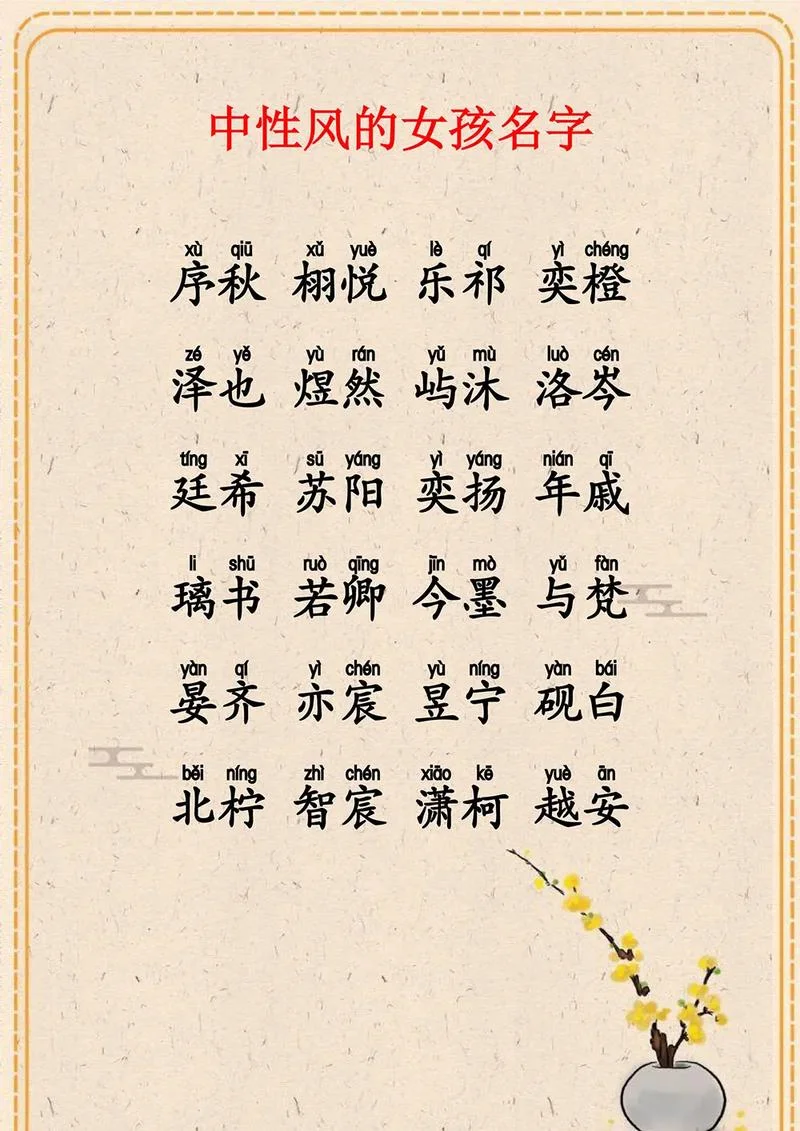 中性风的女孩名字
xù qiū xǔ yuè lè qí yì chéng
序秋 栩悦 乐祁 奕橙
zé yě yù rán yǔ mù luò cén
泽也 煜然 屿沐 洛岑
tíng xī sū yáng yì yáng nián qī
廷希 苏阳 奕扬 年戚
li shū ruò qīng jīn mò yǔ fàn
璃书 若卿 今墨 与梵
yàn qí yì chén yù níng yàn bái
晏齐 亦宸 昱宁 砚白
běi níng zhì chén xiāo kē yuè ān
北柠 智宸 潇柯 越安